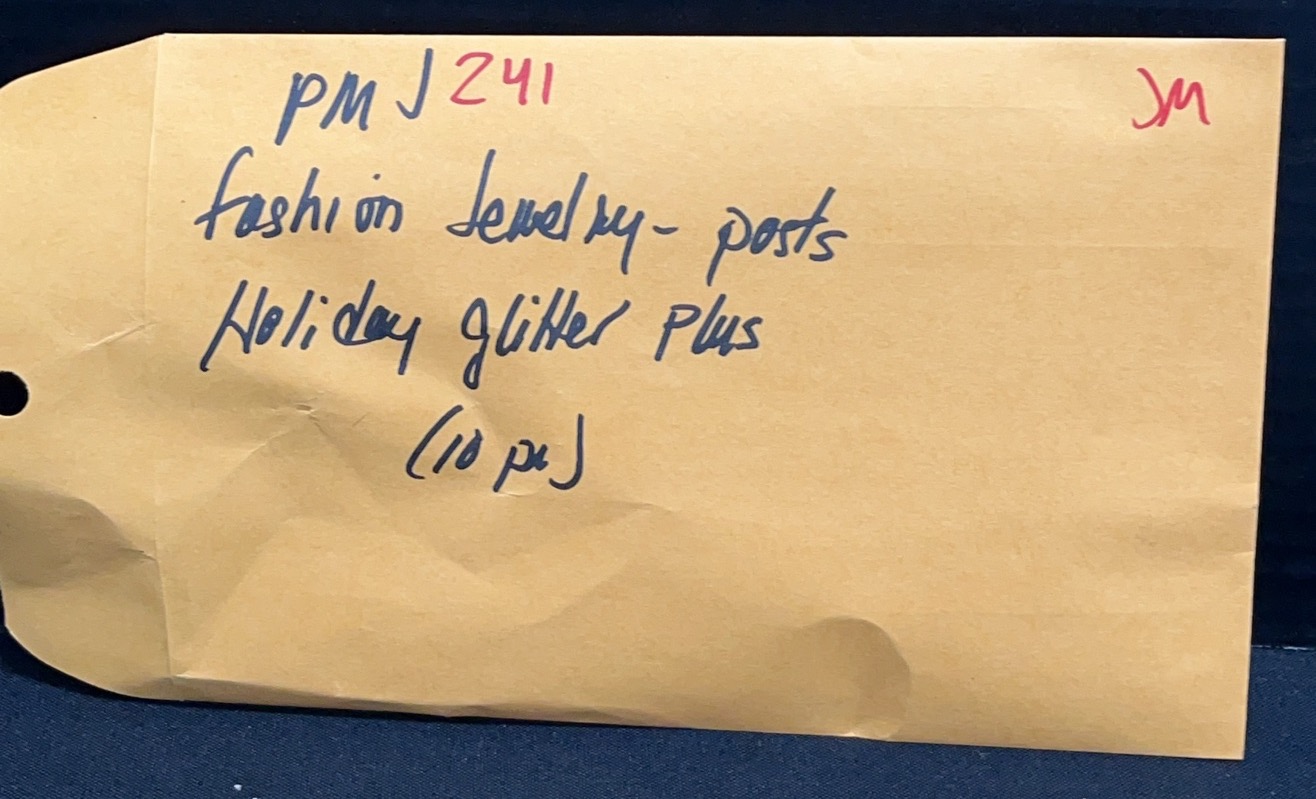 PMJ 241 JM
fashion Jewelry - posts
Holiday glitter Plus
(10 pr)